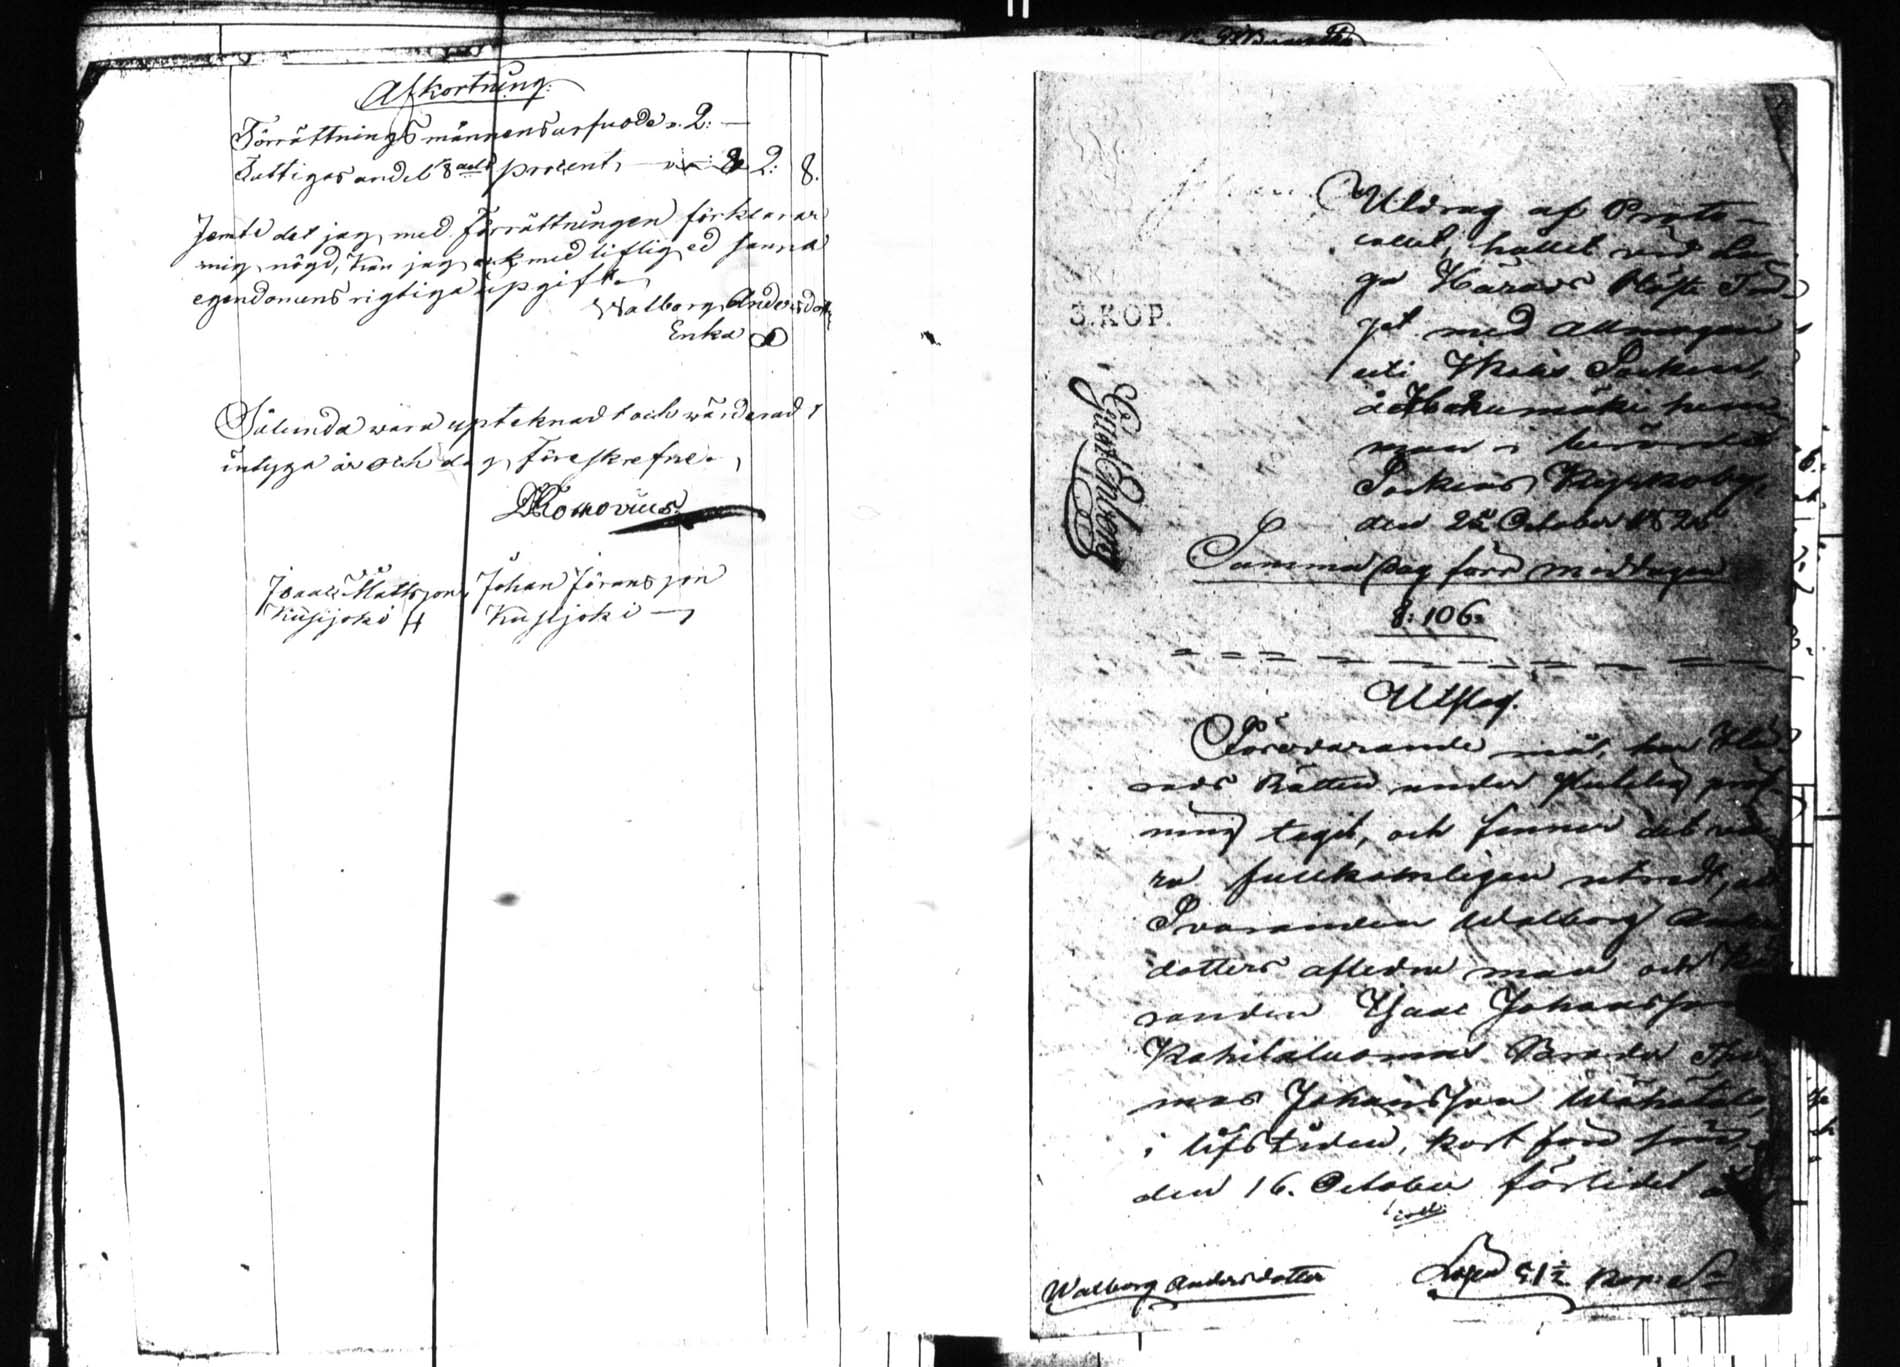 Afkortning.
Förrättningsmännens arfvode „ 2: —
Fattigas andel 8 procent, — 2: 8.
Jemte det jag, med Förrättningen förklarar
mig nögd, kan jag med liflig ed sanna
egendomens rigtiga upgift.
Walborg Andersdotter
Enka
Sålunda vara upteknadt och värderadt
intyga år och dag, Föreskrefne.
Isaac Mattsson Johan Jöransson
Kusijoki Kusijoki
Utdrag af Proto-
collet, hållet vid La-
ga Härads Höste Tin-
get med Allmogen
3. KOP.
uti Socken,
man i berörde
Sockens Kyrckoby,
den October 182
Gustaf Enberg
Samma Dag före middagen
§: 106.
Utslag.
Förevarande mål, har Hä-
rads Rätten under pröf-
ning tagit, och finner det va-
ra fullkomligen utredt, at
Svaranden Walborg Anders
dotters aflidne man och Kä-
randen Isaac Johansson
Broder Tho-
mas Johansson
i lifstiden, kort före sin
den 16. October förledet år
Walborg Andersdotter
Lösen 51½ kop: Sr